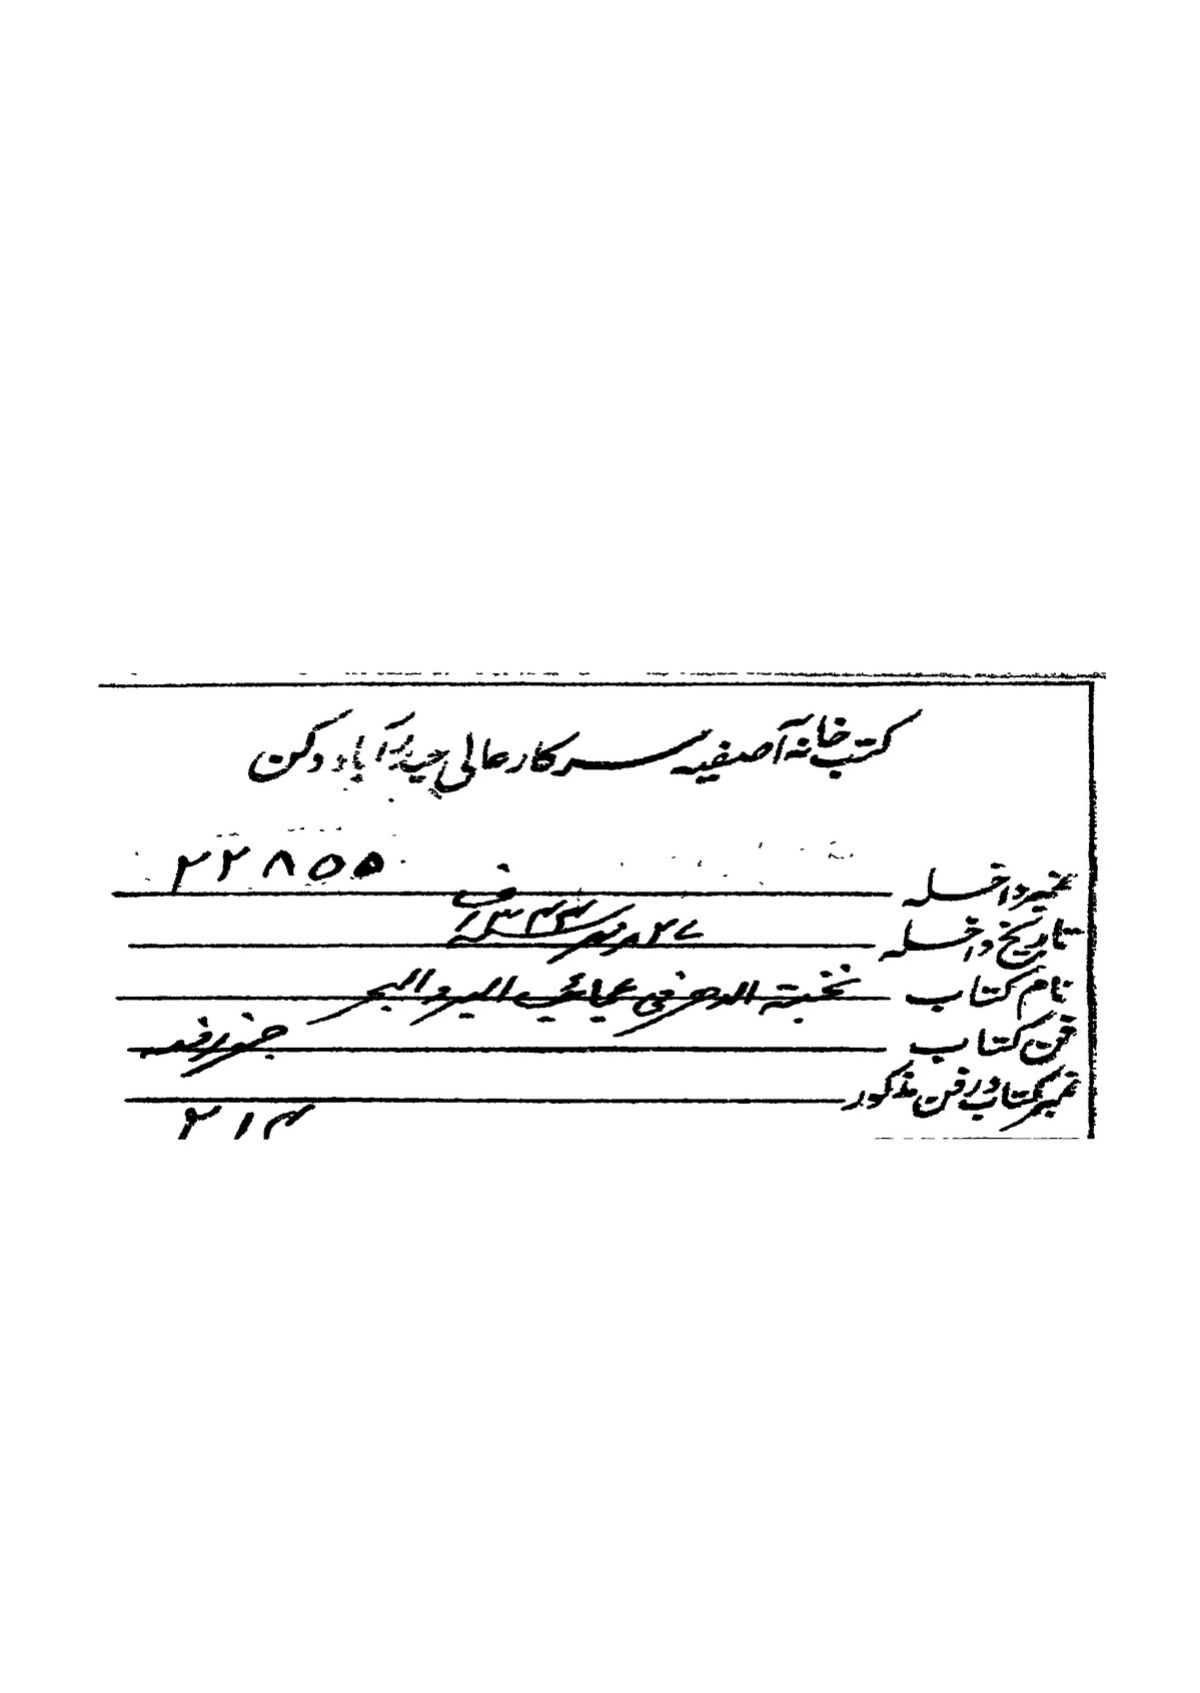 کتب خانہ آصفیہ سرکار عالی حیدرآباد دکن
نمبر داخلہ ۲۲۸۵۵
تاریخ داخلہ
نام کتاب نخبة الدهر فی عجائب البر والبحر
فن کتاب جغرافیہ
نمبر کتاب در فن مذکور ۲۱۴